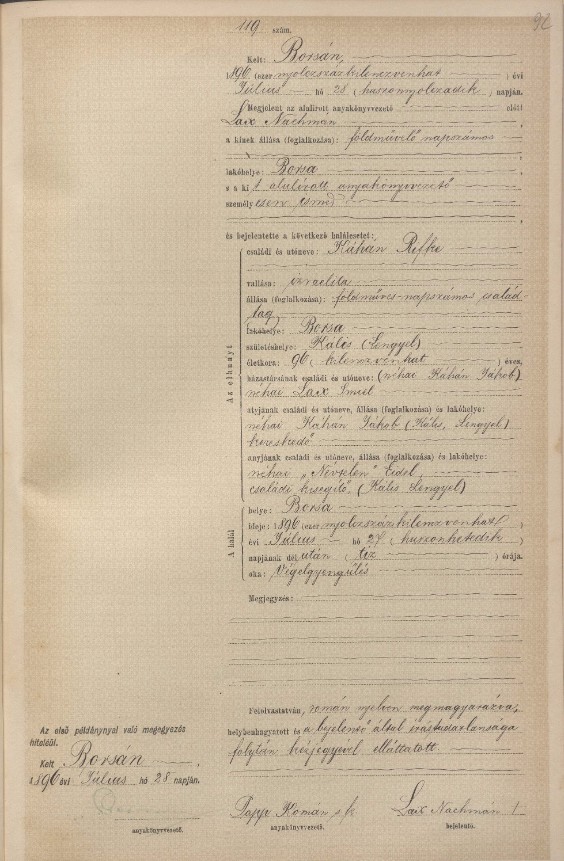 92
119 szám.
Kelt: Borsán,
1896 (ezer nyolczszázkilenczvenhat) évi
Július hó 28 (huszonnyolczadik) napján.
Megjelent az alulirott anyakönyvvezető előtt
Lax Nachmán,
a kinek állása (foglalkozása): földmívelő napszámos
lakóhelye: Borsa
s a kit alulírott anyakönyvvezető
személyesen ismer
és bejelentette a következő halálesetet:
családi és utóneve: Káhán Rifke
vallása: izraelita
állása (foglalkozása): földmíves-napszámos család-
tag
lakóhelye: Borsa
születéshelye: Kális (Lengyel)
életkora: 96 (kilenczvenhat) éves,
házastársának családi és utóneve: (néhai Káhán Jákob)
néhai Laix Smiel
atyjának családi és utóneve, állása (foglalkozása) és lakóhelye:
néhai Káhán Jákob (Kális, Lengyel)
kereskedő
anyjának családi és utóneve, állása (foglalkozása) és lakóhelye:
néhai „Névtelen" Eidel,
családi kisegítő, (Kális Lengyel)
Az elhunyt
helye: Borsa
ideje: 1896 (ezer nyolczszázkilenczvenhat)
évi Július hó 27 (huszonhetedik)
napjának dél után (tíz) órája.
oka: Végelgyengülés
A halál
Megjegyzés:
Felolvastatván, román nyelven megmagyarázva,
helybenhagyatott és a bejelentő által írástudatlansága
folytán kézjegyével elláttatott.
Papp Román s. k.
anyakönyvvezető.
Laix Nachmán
bejelentő.
Az első példánynyal való megegyezés
hiteléül.
Kelt Borsán,
1896 évi Július hó 28 napján.
anyakönyvvezető.